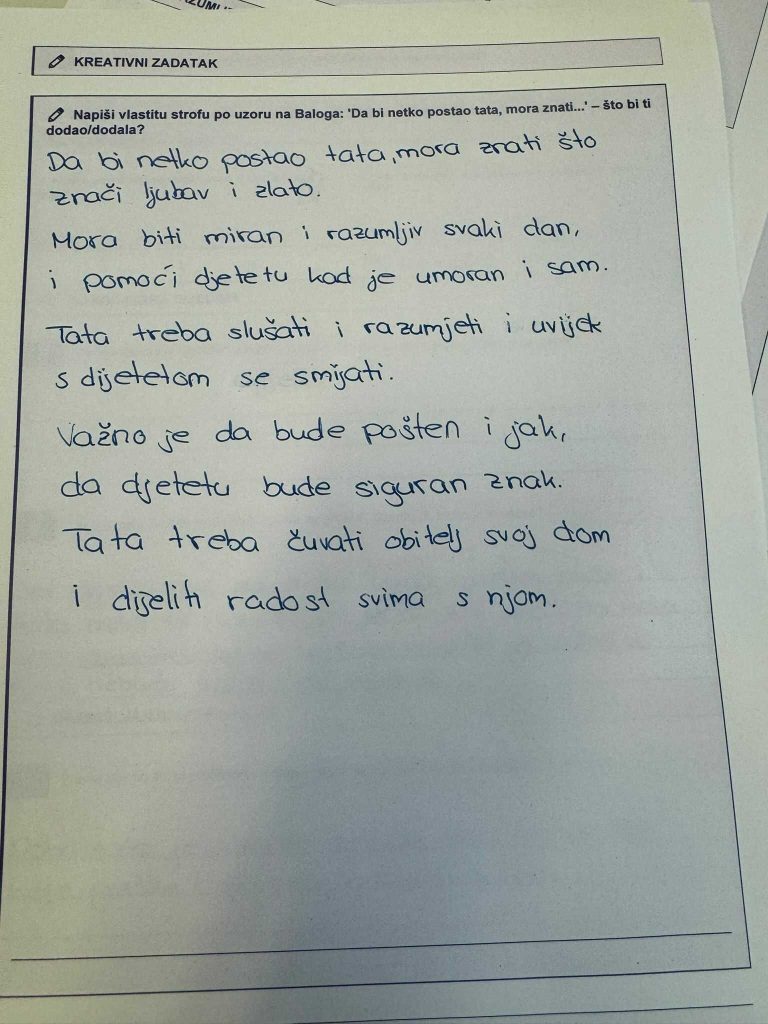 KREATIVNI ZADATAK
Napiši vlastitu strofu po uzoru na Baloga: 'Da bi netko postao tata, mora znati...' – što bi ti
dodao/dodala?
Da bi netko postao tata, mora znati što
znači ljubav i zlato.
Mora biti miran i razumljiv svaki dan,
i pomoći djetetu kad je umoran i sam.
Tata treba slušati i razumjeti i uvijek
s dijetetom se smijati.
Važno je da bude pošten i jak,
da djetetu bude siguran znak.
Tata treba čuvati obitelj svoj dom
i dijeliti radost svima s njom.